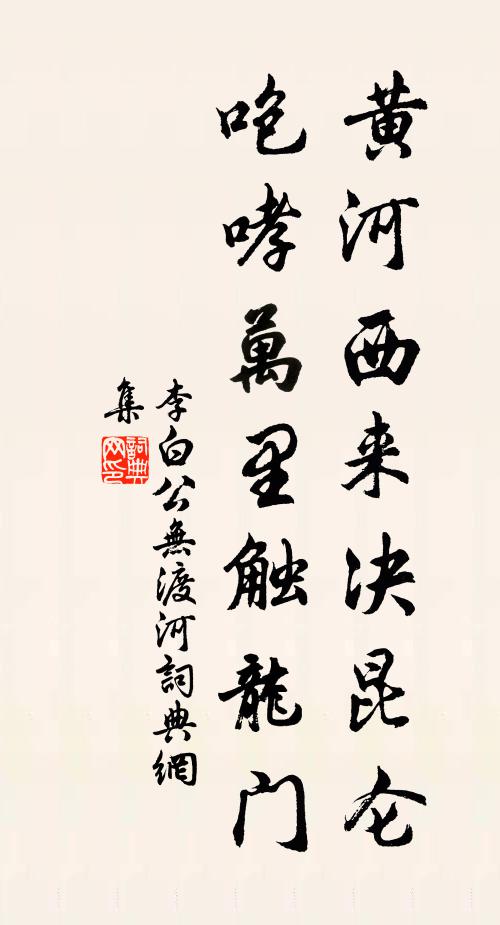 黄河西来决昆仑
咆哮萬里触龍门
李白公無渡河詞典網
集
詞典网印